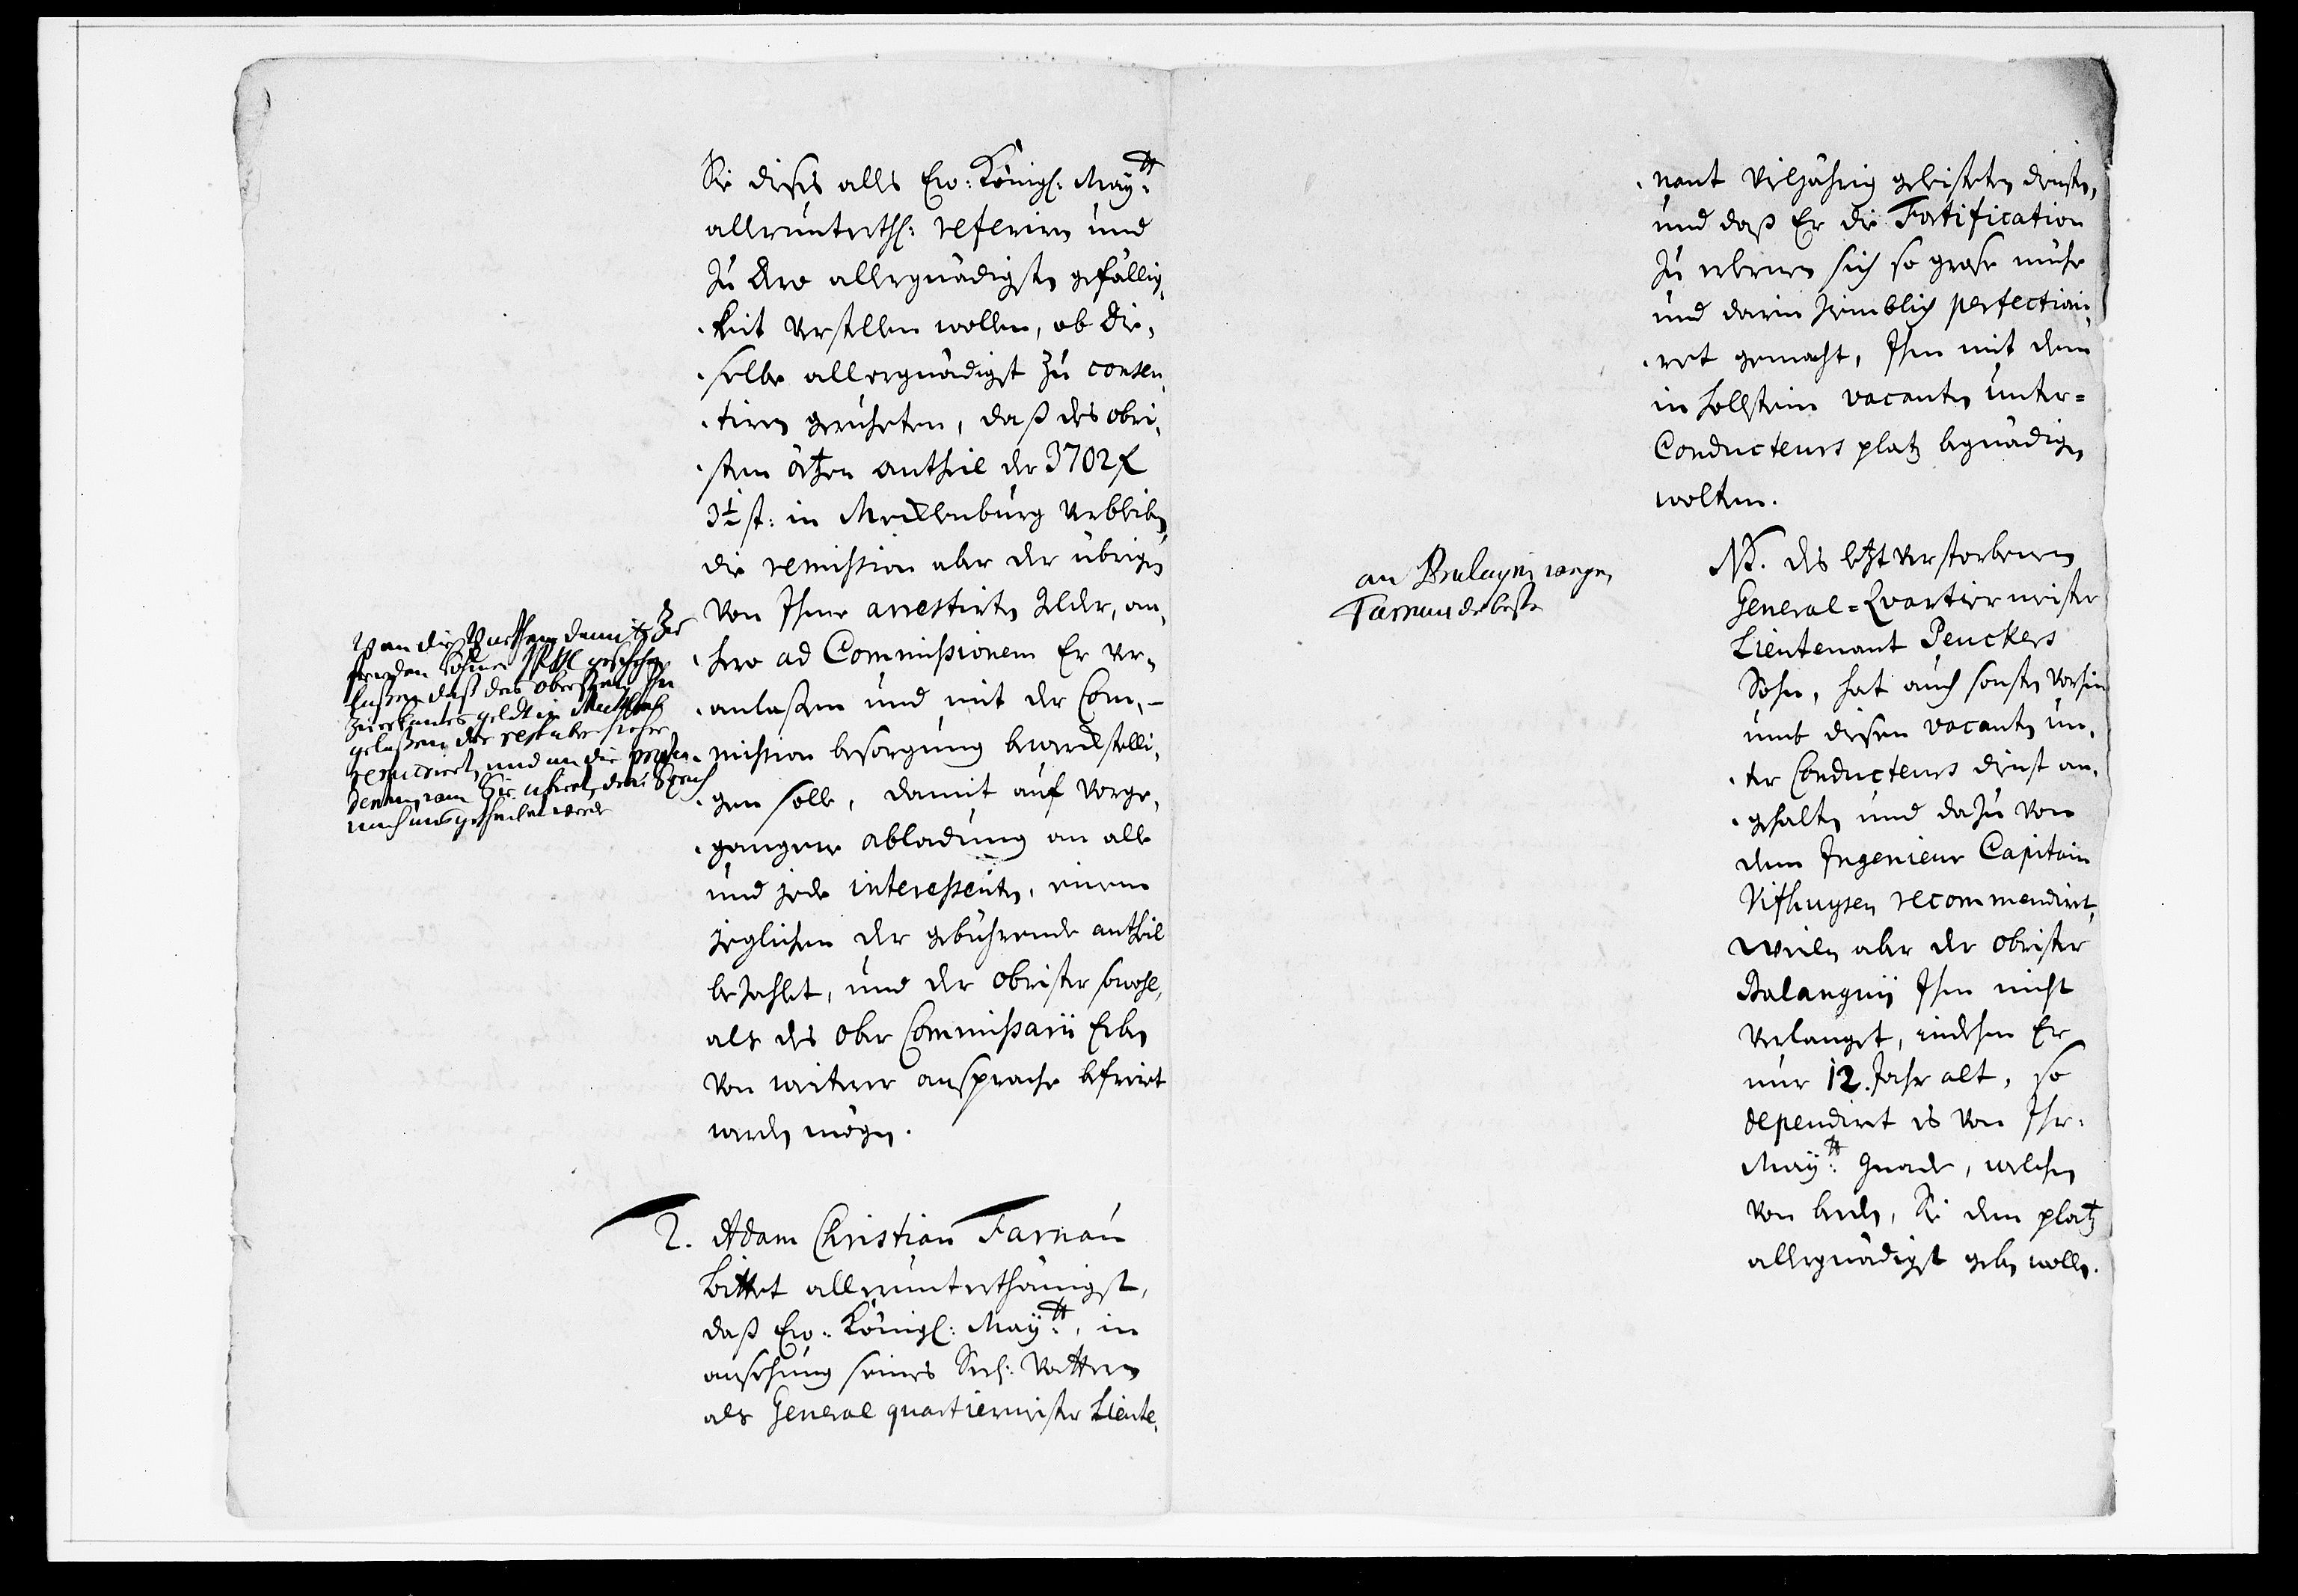 Sie dieses alls Ew: Königl: Maytt:
allerunterth: referiren und
zu Dero allergnädigsten gefällig,
keit verstellen wollen, ob Die,
selbe allergnädigst zu consen,
tiren geruheten, daß des obri,
sten ätzen antheil der 3702 
3½ st: in Mecklenburg verbleiben
die remission aber der übrigen
von Ihme arrestirten gelder, an,
hero ad Commissionem Er ver,
anlaßen und mit der Com,
mission besorgung bewerckstelli,
gen solle, damit auf vorge,
gangene abladung an alle
und jede interessenten, einem
jeglichen der gebührende antheil
bezahlet, und der Obrister sowohl,
als des Ober Commissarii Erben
von weiterer ansprache befreiet
werden mögen.
an die
daß des Obersten
geldt in
gelaßen der rest aber hieher
remittiret, und an die
werde
2. Adam Christian Farnau
bittet allerunterthänigst,
daß Ew: Königl: Maytt:, in
ansehung seines Seel: Vattern
als General quartiermeister Lieute,
nant vieljährig geleisteten dienste,
und daß Er die Fortification
zu erlernen sich so große mühe
und darin ziemblich perfectioni,
ret gemacht, Ihn mit dem
in Hollstein vacanten unter=
Conducteurs platz begnädigen
wolten.
an wegen
Farnau
NB. des letzt verstorbenen
General=Quartiermeister
Lieutenant Peuckers
Sohn, hat auch sonsten vorhin
umb diesen vacanten un,
ter Conducteurs dienst an,
gehalten und dazu von
dem Ingenieur Capitain
recommendiret,
weilen aber der Obrister
Ihn nicht
verlanget, indehm Er
nur 12. Jahr alt, so
dependiret es von Ihr:
Maytt: Gnade, welchen
von beeden, Sie den platz
allergnädigst geben wollen.